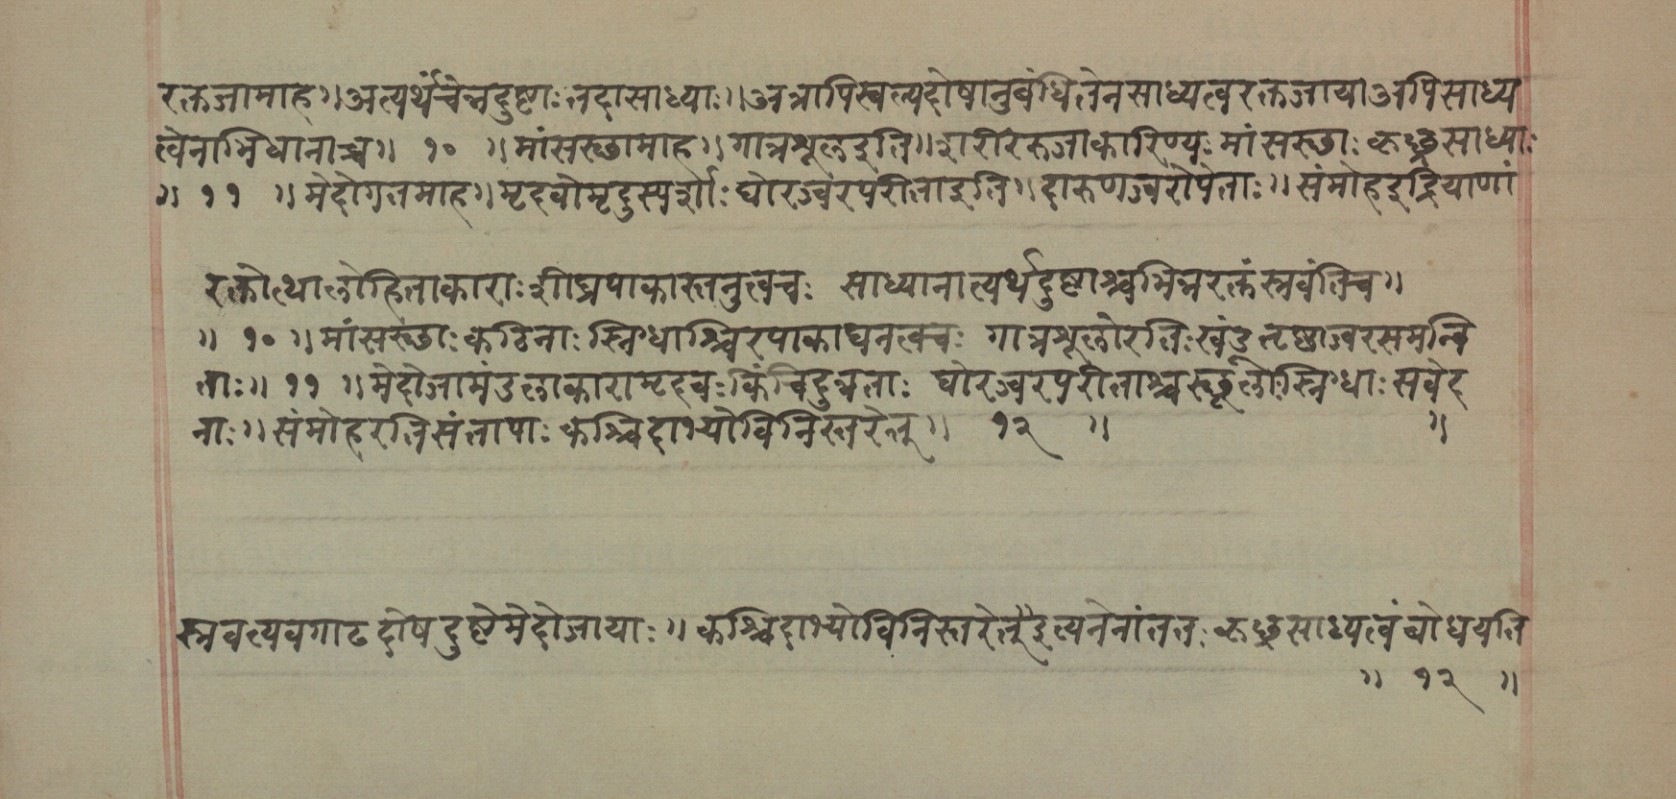 रक्तजामाह॥अत्यर्थंचेन्नदुष्टाःतदासाध्याः॥अत्रापिस्वल्पदोषानुबंधित्वेनसाध्यत्वरक्तजायाअपिसाध्य
त्वेनाभिधानाच्च॥ १० ॥मांसस्छामाह॥गात्रशूलइति॥शरीरेरुजाकारिण्यःमांसस्छाःकछ्रसाध्याः
॥ ११ ॥मेदोगतमाह॥मृदवोमृदुस्पर्शाःघोरज्वरपरीताइति॥दारुणज्वरोपेताः॥संमोहइंद्रियाणां
रक्तोत्थालोहिताकाराःशीघ्रपाकास्तनुत्वचः साध्यानात्यर्थदुष्टाश्चभिन्नरक्तंस्रवंतिच॥
॥ १० ॥मांसस्छाःकठिनाःस्निग्धाश्चिरपाकाघनत्वचः गात्रशूलोरतिःखंडुतृष्णाज्वरसमन्वि
ताः॥ ११ ॥मेदोजामंडलाकारामृदवःकिंचिदुन्नताः घोरज्वरपरीताश्चस्थूलाःस्निग्धाःसवेद
नाः॥संमोहरतिसंतापाःकश्चिदाभ्योविनिस्तरेत्॥ १२ ॥ ॥
स्रवत्यवगाढदोषदुष्टेमेदोजायाः॥कश्चिदाभ्योविनिस्तरेत्इत्यनेनांततःकछ्रसाध्यत्वंबोधयति
॥ १२ ॥